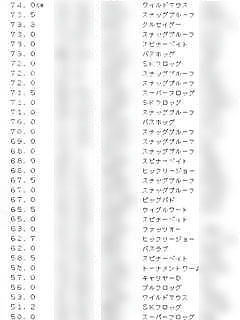 74. 0cm ワイルドマウス
73. 5 スナッグプルーフ
73. 3 クルセイダー
73. 0 スナッグプルーフ
73. 0 スピナーベイト
73. 0 バスホッグ
72. 0 SKフロッグ
72. 0 スナッグプルーフ
72. 0 スナッグプルーフ
71. 5 スーパーフロッグ
71. 0 SKフロッグ
71. 0 スナッグプルーフ
70. 0 バスホッグ
70. 0 スナッグプルーフ
69. 0 スナッグプルーフ
68. 0 スナッグプルーフ
68. 0 スピナーベイト
68. 0 ビックリージョー
67. 5 スナッグプルーフ
67. 0 スナッグプルーフ
67. 0 ビッグバド
65. 5 ウィグルワート
65. 0 スピナーベイト
63. 0 ファッツオー
62. 7 ビックリージョー
62. 0 バスラブ
58. 5 スピナーベイト
58. 0 トーナメントワーム
57. 0 キャリヤーD
56. 0 ブルフロッグ
53. 0 ワイルドマウス
51. 2 SKフロッグ
50. 0 スーパーフロッグ